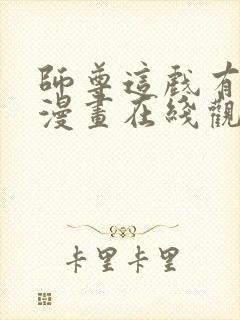 師尊這戲有
漫畫在綫觀
卡里卡里